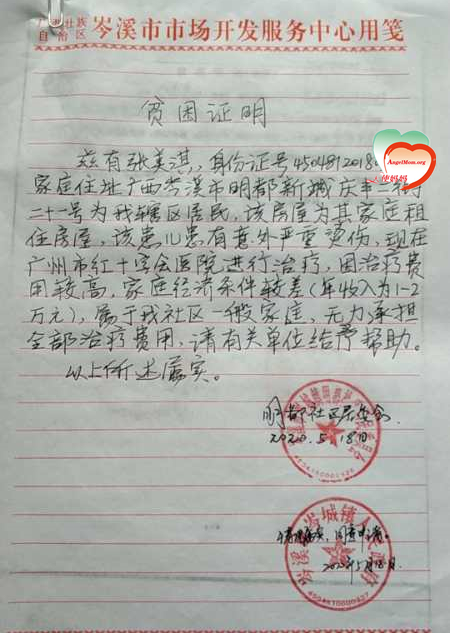 广西壮族自治区岑溪市市场开发服务中心用笺
贫困证明
兹有张美淇，身份证号4504812018
AngelMom.org
天使妈妈
家庭住址广西岑溪市明都新城庆丰二街
二十一号为我辖区居民，该房屋为其家庭租
住房屋，该患儿患有意外严重烫伤，现在
广州市红十字会医院进行治疗，因治疗费
用较高，家庭经济条件较差（年收入为1-2
万元），属于我社区一般家庭，无力承担
全部治疗费用，请有关单位给予帮助。
以上所述属实。
明都社区居委会
2020.5.18日
情况属实，同意申请。
2020年5月18日
岑溪市岑城镇人民政府